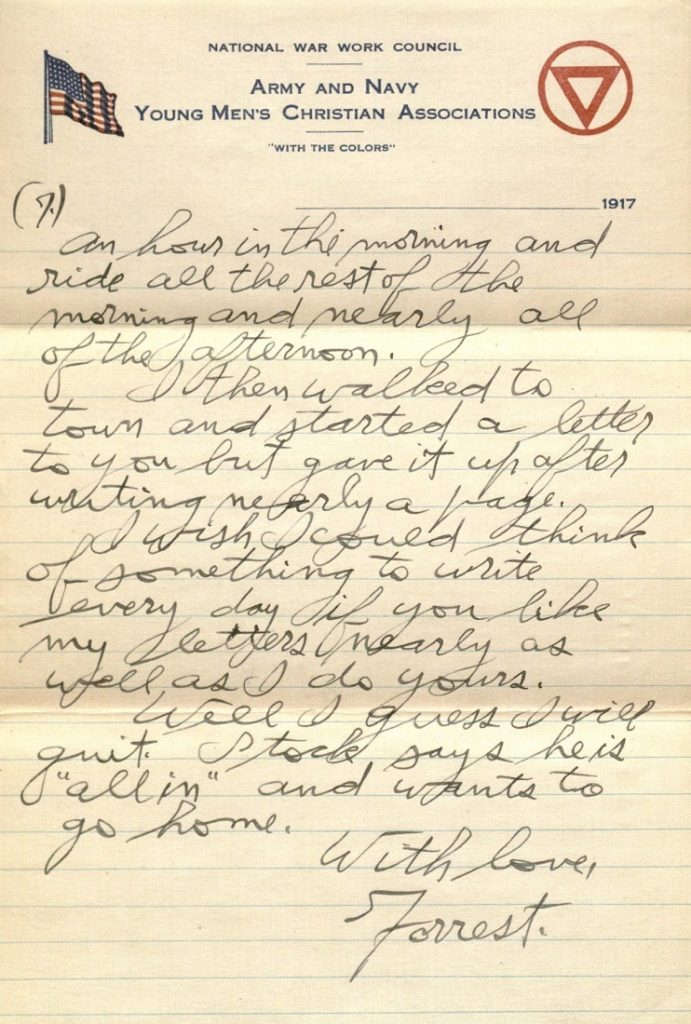 NATIONAL WAR WORK COUNCIL
ARMY AND NAVY
YOUNG MEN'S CHRISTIAN ASSOCIATIONS
"WITH THE COLORS"
1917
(7.)
an hour in the morning and
ride all the rest of the
morning and nearly all
of the afternoon.
I then walked to
town and started a letter
to you but gave it up after
writing nearly a page.
I wish I could think
of something to write
every day if you like
my letters nearly as
well as I do yours.
Well I guess I will
quit. Stock says he is
"all in" and wants to
go home.
With love,
Forrest.